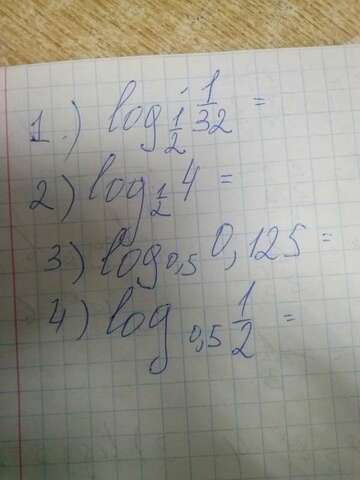 1.) log_{1/2} 1/32 =
2) log_{1/2} 4 =
3) log_{0,5} 0,125 =
4) log_{0,5} 1/2 =